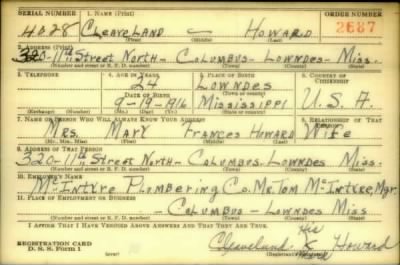 SERIAL NUMBER 1. NAME (Print) ORDER NUMBER
4028 CLEAVELAND — HOWARD 2687
(First) (Middle) (Last)
2. ADDRESS (Print)
320-11th Street North - Columbus - Lowndes - Miss.
(Number and street or R. F. D. number) (Town) (County) (State)
3. TELEPHONE 4. AGE IN YEARS 5. PLACE OF BIRTH 6. COUNTRY OF CITIZENSHIP
24 LOWNDES
DATE OF BIRTH
9-19-1916 MISSISSIPPI U.S.A.
(Exchange) (Number) (Mo.) (Day) (Yr.) (State or country)
7. NAME OF PERSON WHO WILL ALWAYS KNOW YOUR ADDRESS 8. RELATIONSHIP OF THAT PERSON
MRS. MARY FRANCES HOWARD WIFE
(Mr., Mrs., Miss) (First) (Middle) (Last)
9. ADDRESS OF THAT PERSON
320-11th Street North - Columbus - Lowndes Miss.
(Number and street or R. F. D. number) (Town) (County) (State)
10. EMPLOYER'S NAME
McIntyre Plumbering Co. Mr. Tom McIntyre, Mgr.
11. PLACE OF EMPLOYMENT OR BUSINESS
- Columbus - Lowndes Miss
(Number and street or R. F. D. number) (Town) (County) (State)
I AFFIRM THAT I HAVE VERIFIED ABOVE ANSWERS AND THAT THEY ARE TRUE.
His
REGISTRATION CARD Cleaveland X Howard
D. S. S. Form 1 (over) Mark